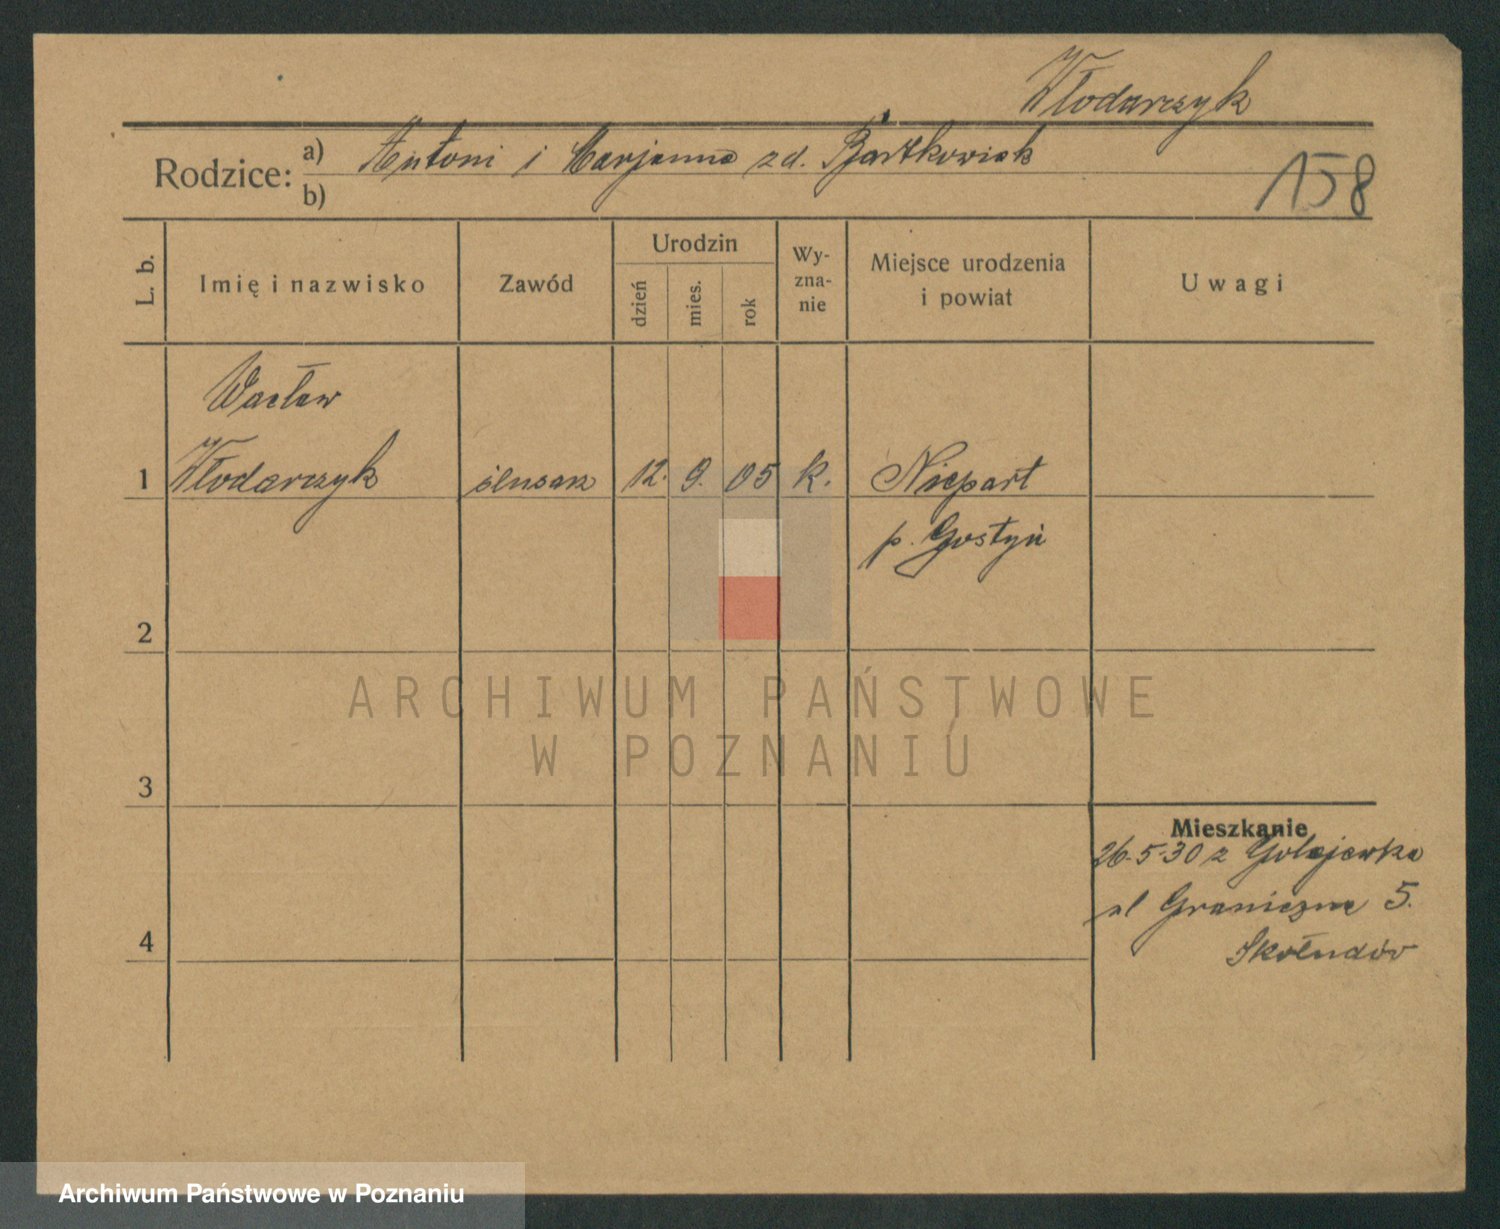 Włodarczyk
Rodzice: a) Antoni i Marjanna zd. Bartkowiak
b)
158
L. b.
Imię i nazwisko
Zawód
Urodzin
dzień
mies.
rok
Wy-
zna-
nie
Miejsce urodzenia
i powiat
Uwagi
Wacław
1 Włodarczyk ślusarz 12. 9. 05 k. Niepart
p. Gostyń
2
3
4
Mieszkanie
26-5-30 z Golejewka
ul Graniczna 5.
ARCHIWUM PAŃSTWOWE
W POZNANIU
Archiwum Państwowe w Poznaniu